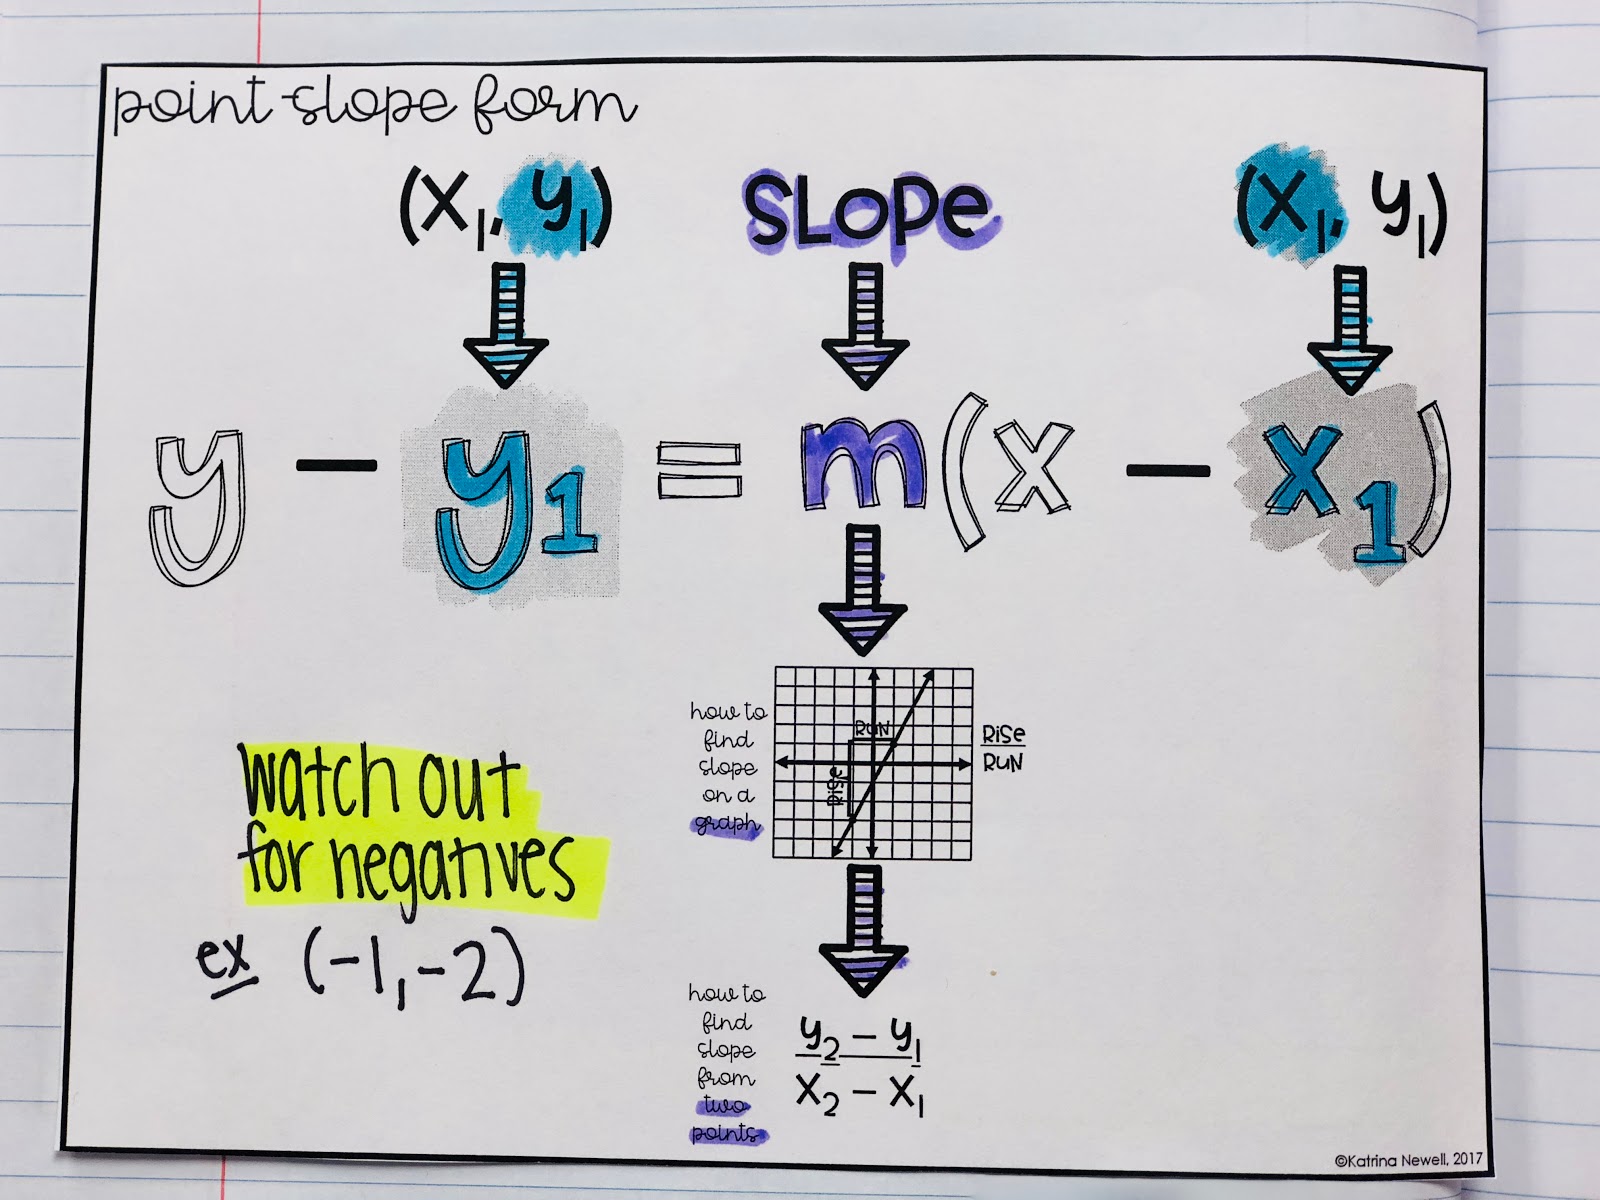 point-slope form
(x₁, y₁) SLOPE (x₁, y₁)
y − y₁ = m(x − x₁)
how to
find
slope
on a
graph
RUN
Rise
Rise
RUN
watch out
for negatives
ex (-1,-2)
how to
find
slope
from
two
points
y₂ − y₁
x₂ − x₁
©Katrina Newell, 2017